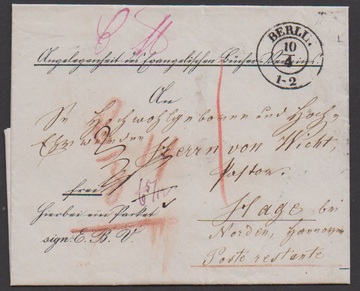 BERLIN
10
4
1-2
Angelegenheit des Evangelischen Bücher Vereins.
An
Sr Hochwohlgeboren und Hoch-
Ehrwürden
Herrn von Wicht,
Pastor.
frei
Hage bei
Hierbei ein Packet
Norden, Hannover
sign: E. B. V.
Poste restante